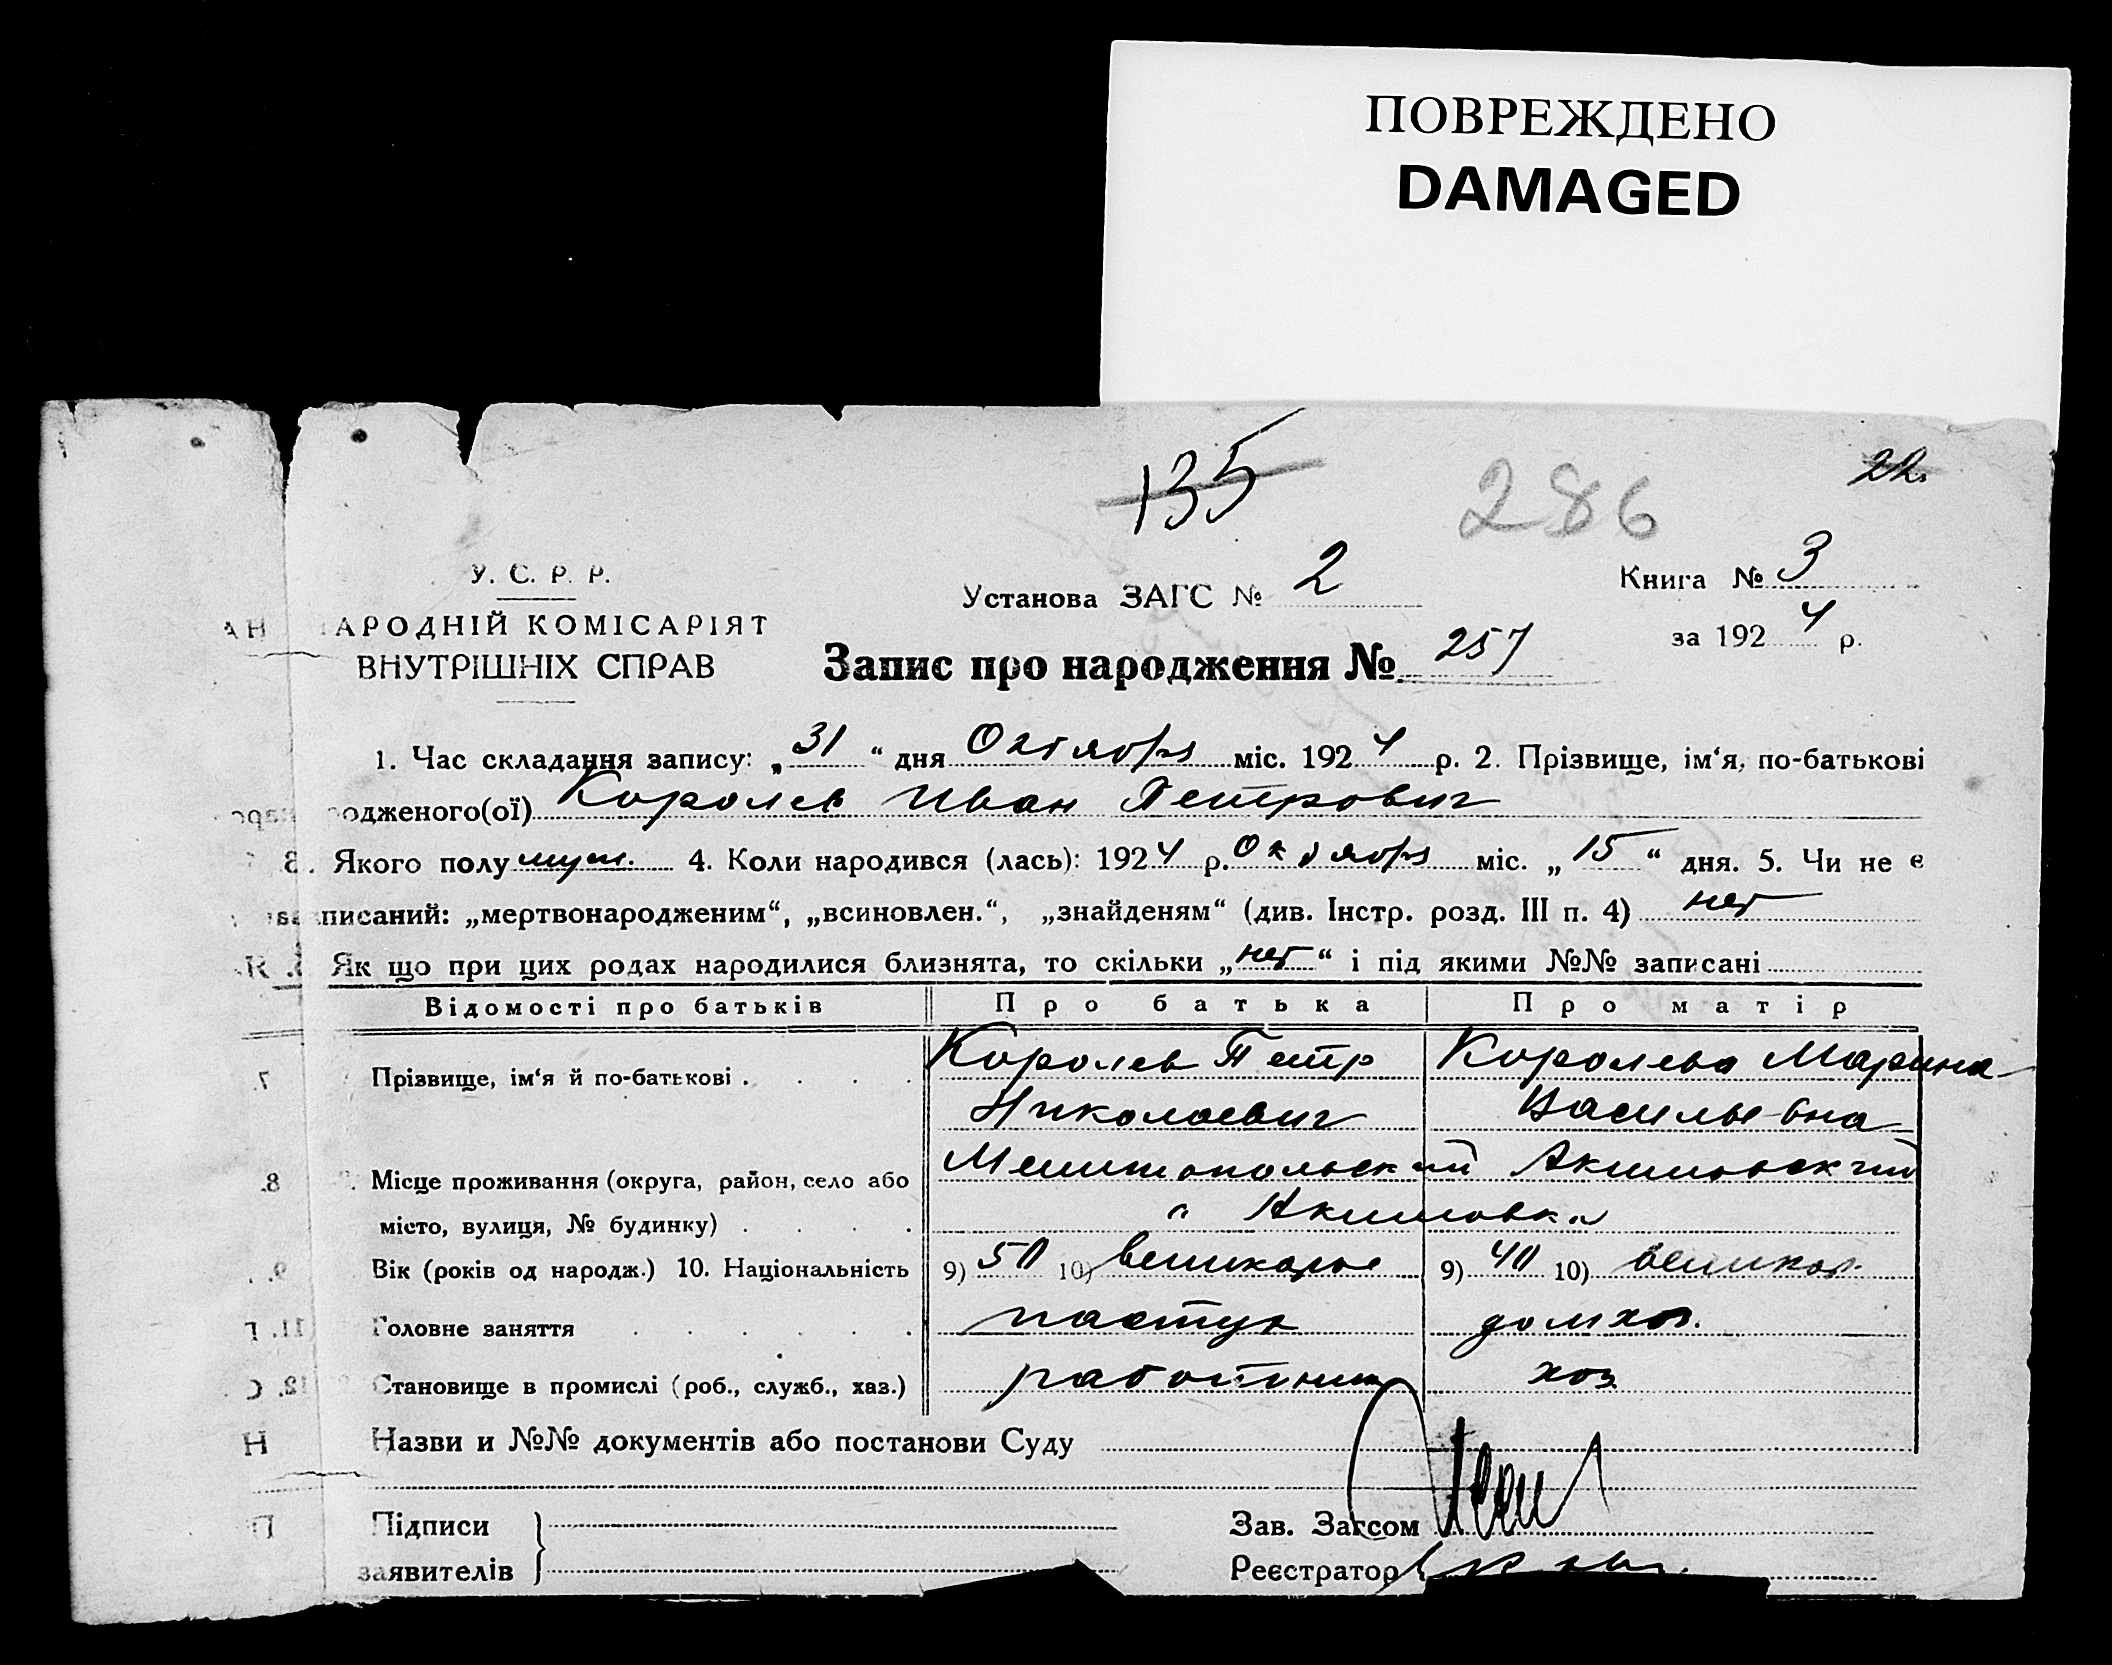 ПОВРЕЖДЕНО
DAMAGED
135
286
22.
У. С. Р. Р.
АРОДНІЙ КОМІСАРІЯТ
ВНУТРІШНІХ СПРАВ
Установа ЗАГС № 2
Книга № 3
за 1924 р.
Запис про народження № 257
1. Час складання запису: „31“ дня Октября міс. 1924 р. 2. Прізвище, ім‘я, по-батькові
одженого(ої) Королев Иван Петрович
3. Якого полу муж. 4. Коли народився (лась): 1924 р. Октября міс. „15“ дня. 5. Чи не є
писаний: „мертвонародженим“, „всиновлен.“, „знайденям“ (див. Інстр. розд. III п. 4) нет
6. Як що при цих родах народилися близнята, то скільки „нет“ і під якими №№ записані
Відомості про батьків Про батька Про матір
7. Прізвище, ім‘я й по-батькові . . . . Королев Петр Николаевич Королева Марина Васильевна
8. Місце проживання (округа, район, село або Мелитопольский Акимовский
місто, вулиця, № будинку) . . . . " Акимовка
9. Вік (років од народж.) 10. Національність 9) 50 10) великорос 9) 40 10) великор.
11. Головне заняття . . . . . . пастух домхоз.
12. Становище в промислі (роб., служб., хаз.) работник хоз
Назви и №№ документів або постанови Суду
Підписи
заявителів
Зав. Загсом
Реєстратор